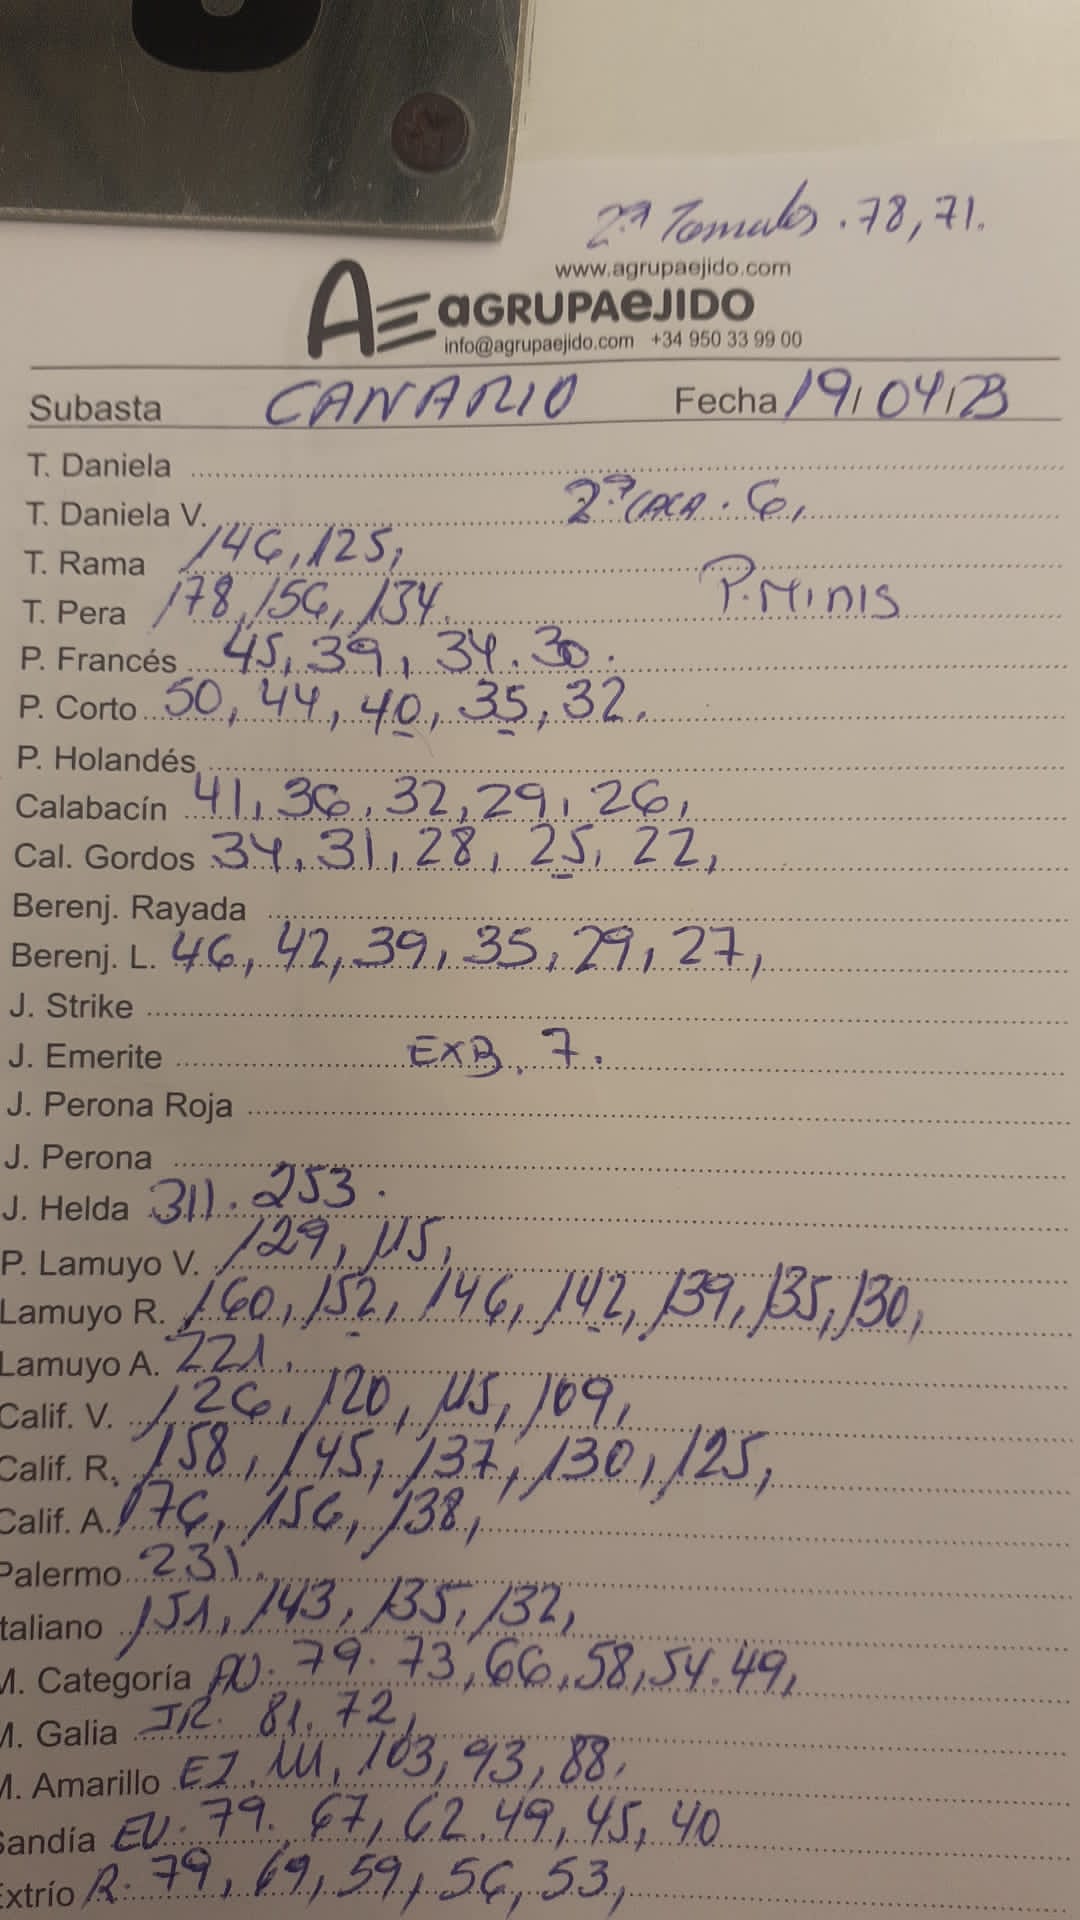 2ª Tomates. 78, 71.
www.agrupaejido.com
AE aGRUPAeJIDO
info@agrupaejido.com +34 950 33 99 00
Subasta CANARIO Fecha 19/04/23
T. Daniela
T. Daniela V. 2ª CACA. 6,
T. Rama 146, 125,
T. Pera 178, 156, 134. P. MINIS
P. Francés 45, 39, 34. 30.
P. Corto 50, 44, 40, 35, 32.
P. Holandés
Calabacín 41, 36, 32, 29, 26,
Cal. Gordos 34, 31, 28, 25, 22,
Berenj. Rayada
Berenj. L. 46, 42, 39, 35, 29, 27,
J. Strike
J. Emerite EXB. 7.
J. Perona Roja
J. Perona
J. Helda 311. 253.
P. Lamuyo V. 129, 115,
Lamuyo R. 160, 152, 146, 142, 139, 135, 130,
Lamuyo A. 221.
Calif. V. 126, 120, 115, 109,
Calif. R. 158, 145, 137, 130, 125,
Calif. A. 176, 156, 138,
Palermo 231.
taliano 151, 143, 135, 132,
M. Categoría PV. 79. 73, 66, 58, 54. 49,
M. Galia JR. 81. 72,
M. Amarillo EJ. 111, 103, 93, 88.
Sandía EV. 79. 67, 62. 49, 45, 40
Extrío R. 79, 69, 59, 56, 53,